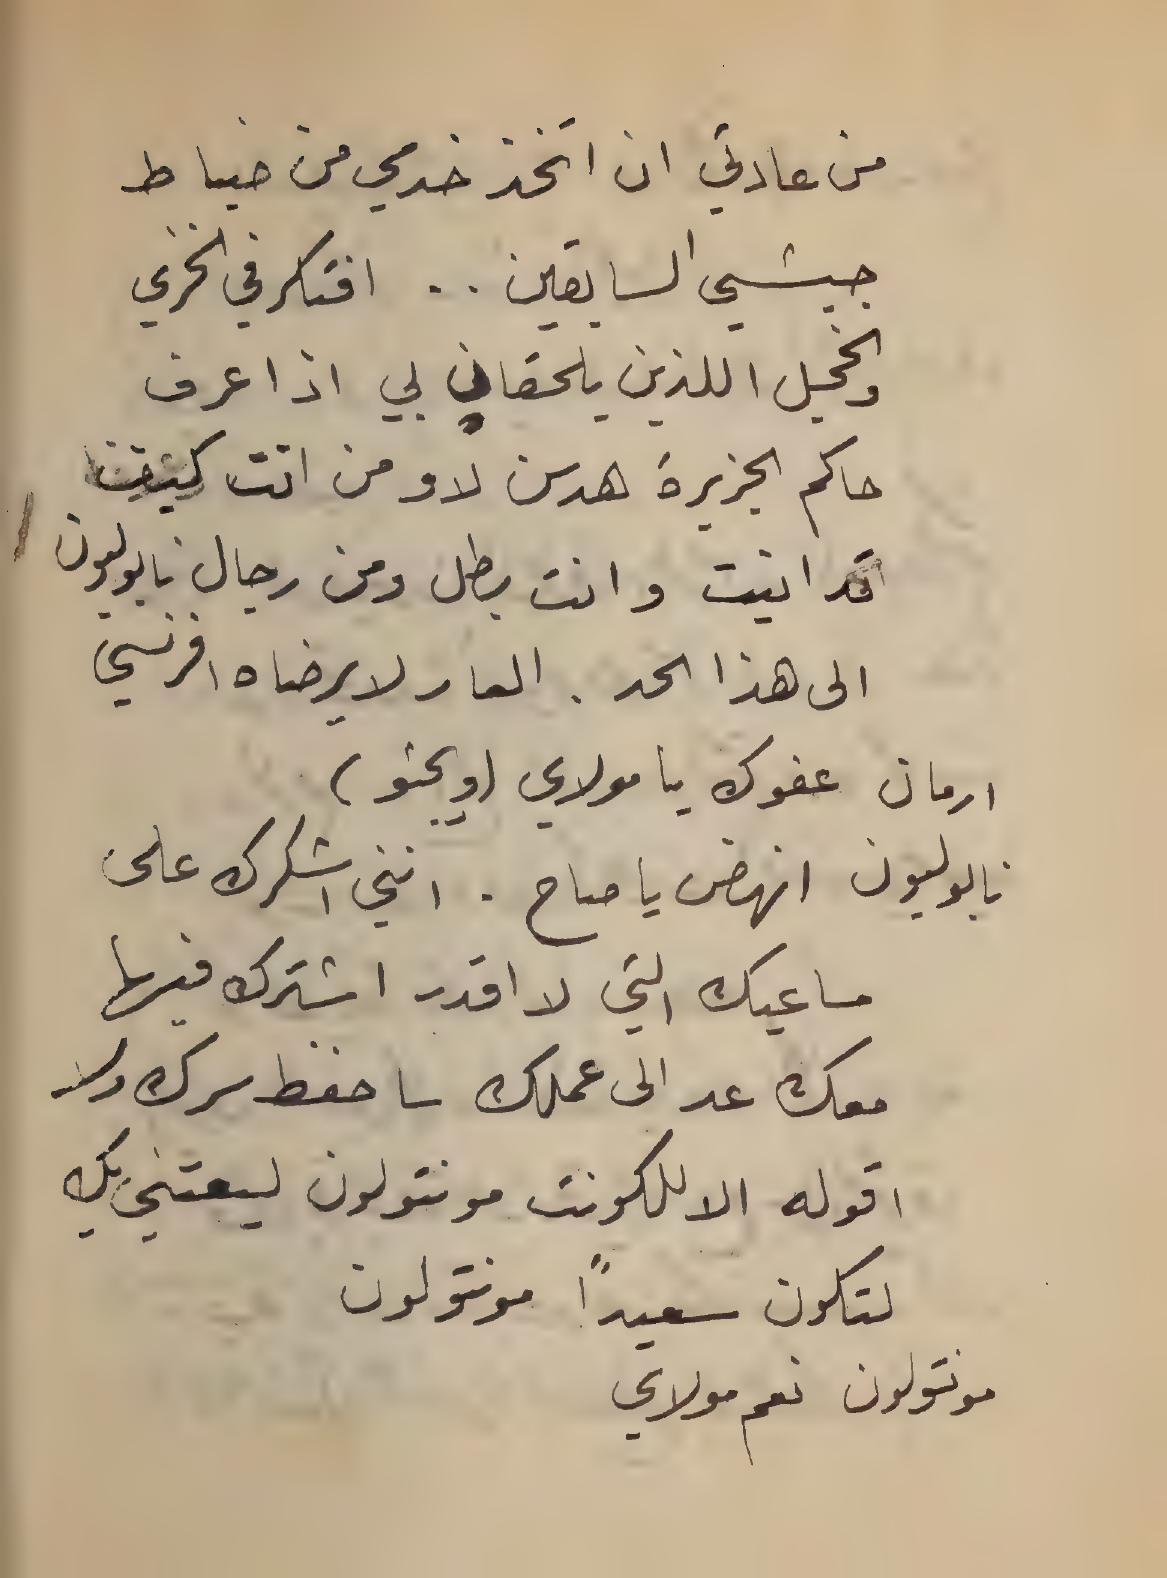 من عادتي ان اتخذ خدمي من ضباط
جيشي السابقين .. افتكر في الخزي
والخجل اللذين يلحقان بي اذا عرف
حاكم الجزيرة هدسن لاو من انت كيف
قد اتيت وانت بطل ومن رجال نابوليون
الى هذا الحد . العار لا يرضاه افرنسي
ارمان عفوك يا مولاي (ويجثو)
نابوليون انهض يا صاح . انني اشكرك على
مساعيك التي لا اقدر اشترك فيها
معك عد الى عملك ساحفظ سرك ولا
اقوله الا للكونت مونتولون ليعتني بك
لتكون سعيداً مونتولون
مونتولون نعم مولاي